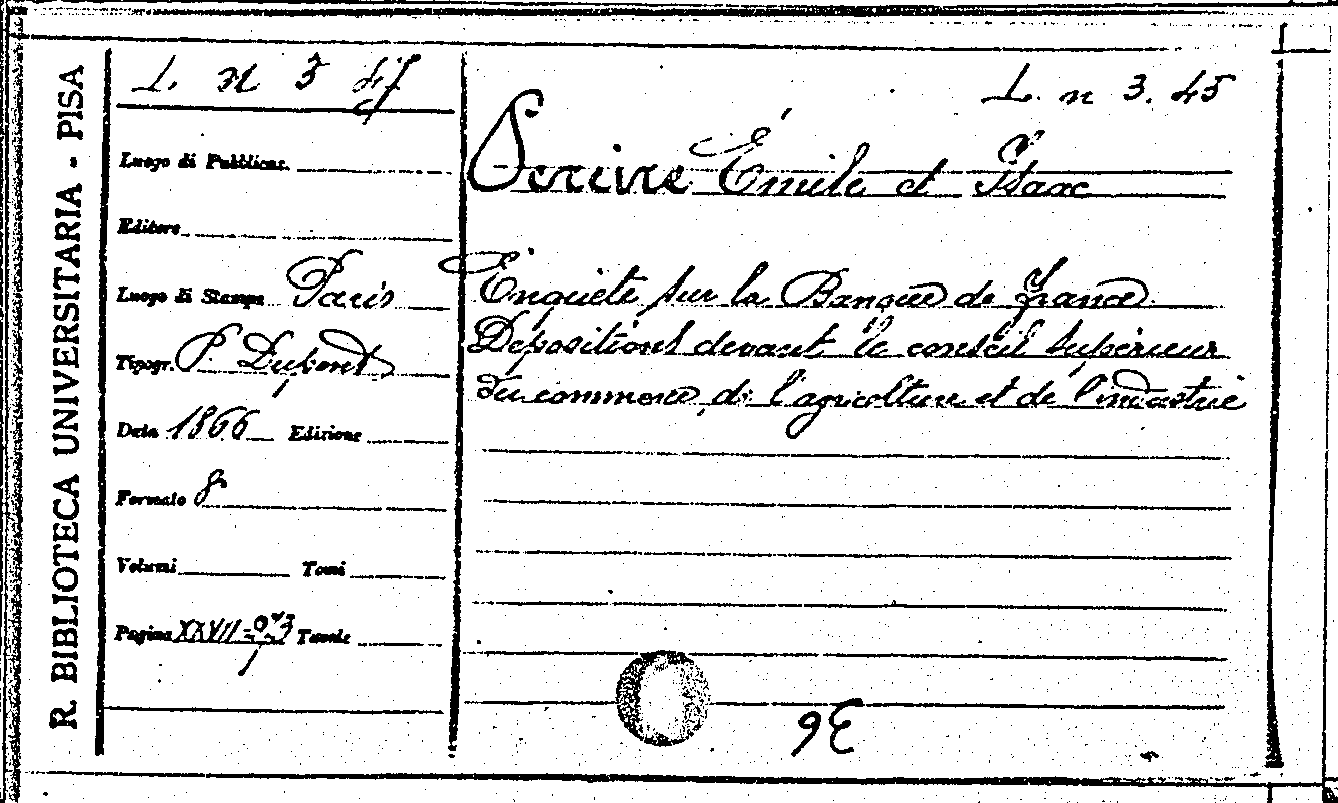 R. BIBLIOTECA UNIVERSITARIA - PISA
L. n 3 45
L. n 3. 45
Luogo di Pubblicaz.
Editore
Luogo di Stampa Paris
Tipogr. P. Dupont
Data 1866 Edizione
Formato 8°
Volumi Tomi
Pagine XXVII Tavole
Pereire Émile et Isaac
Enquête sur la Banque de France
Depositions devant le conseil supérieur
du commerce, de l'agriculture et de l'industrie
9E